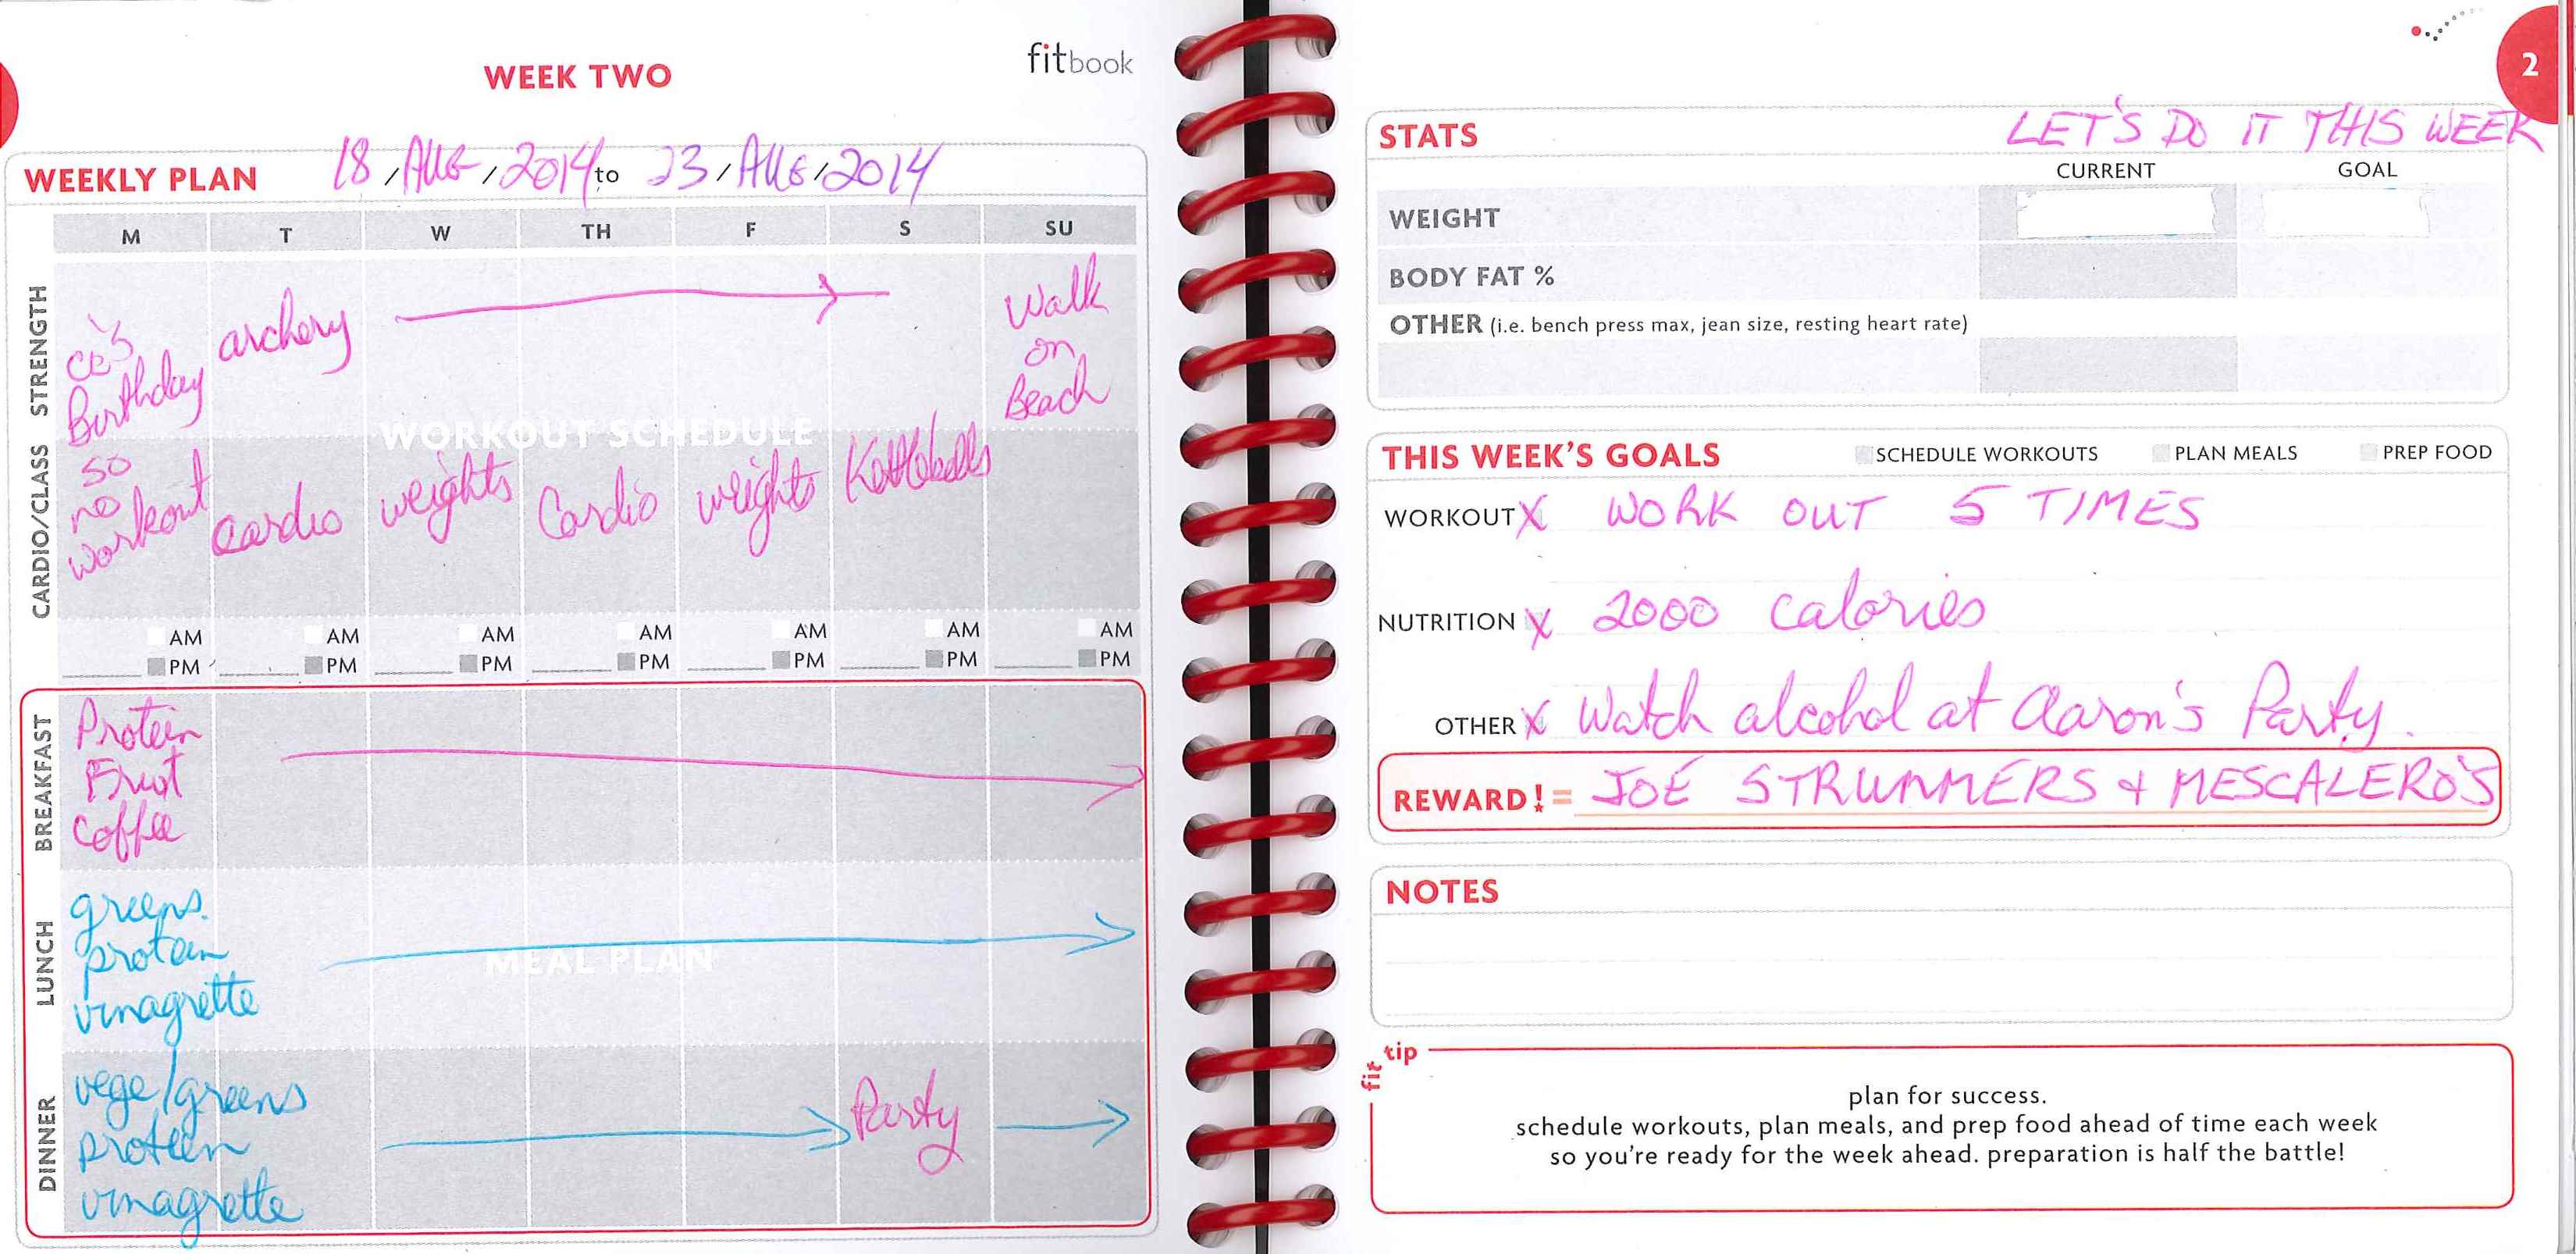 WEEK TWO
fitbook
WEEKLY PLAN 18/AUG/2014 to 23/AUG/2014
M T W TH F S SU
STRENGTH
CARDIO/CLASS
WORKOUT SCHEDULE
CC's
Birthday
so
no
workout
archery
Walk
on
Beach
cardio weights Cardio weights Kettlebells
AM AM AM AM AM AM AM
PM PM PM PM PM PM PM
BREAKFAST
Protein
Fruit
Coffee
LUNCH
MEAL PLAN
greens.
protein
vinagrette
DINNER
vege/greens
protein
vinagrette
Party
2
STATS
LET'S DO IT THIS WEEK
CURRENT GOAL
WEIGHT
BODY FAT %
OTHER (i.e. bench press max, jean size, resting heart rate)
THIS WEEK'S GOALS SCHEDULE WORKOUTS PLAN MEALS PREP FOOD
WORKOUT X WORK OUT 5 TIMES
NUTRITION X 2000 Calories
OTHER X Watch alcohol at Aaron's Party.
REWARD! = JOE STRUMMERS + MESCALERO'S
NOTES
fit tip
plan for success.
schedule workouts, plan meals, and prep food ahead of time each week
so you're ready for the week ahead. preparation is half the battle!